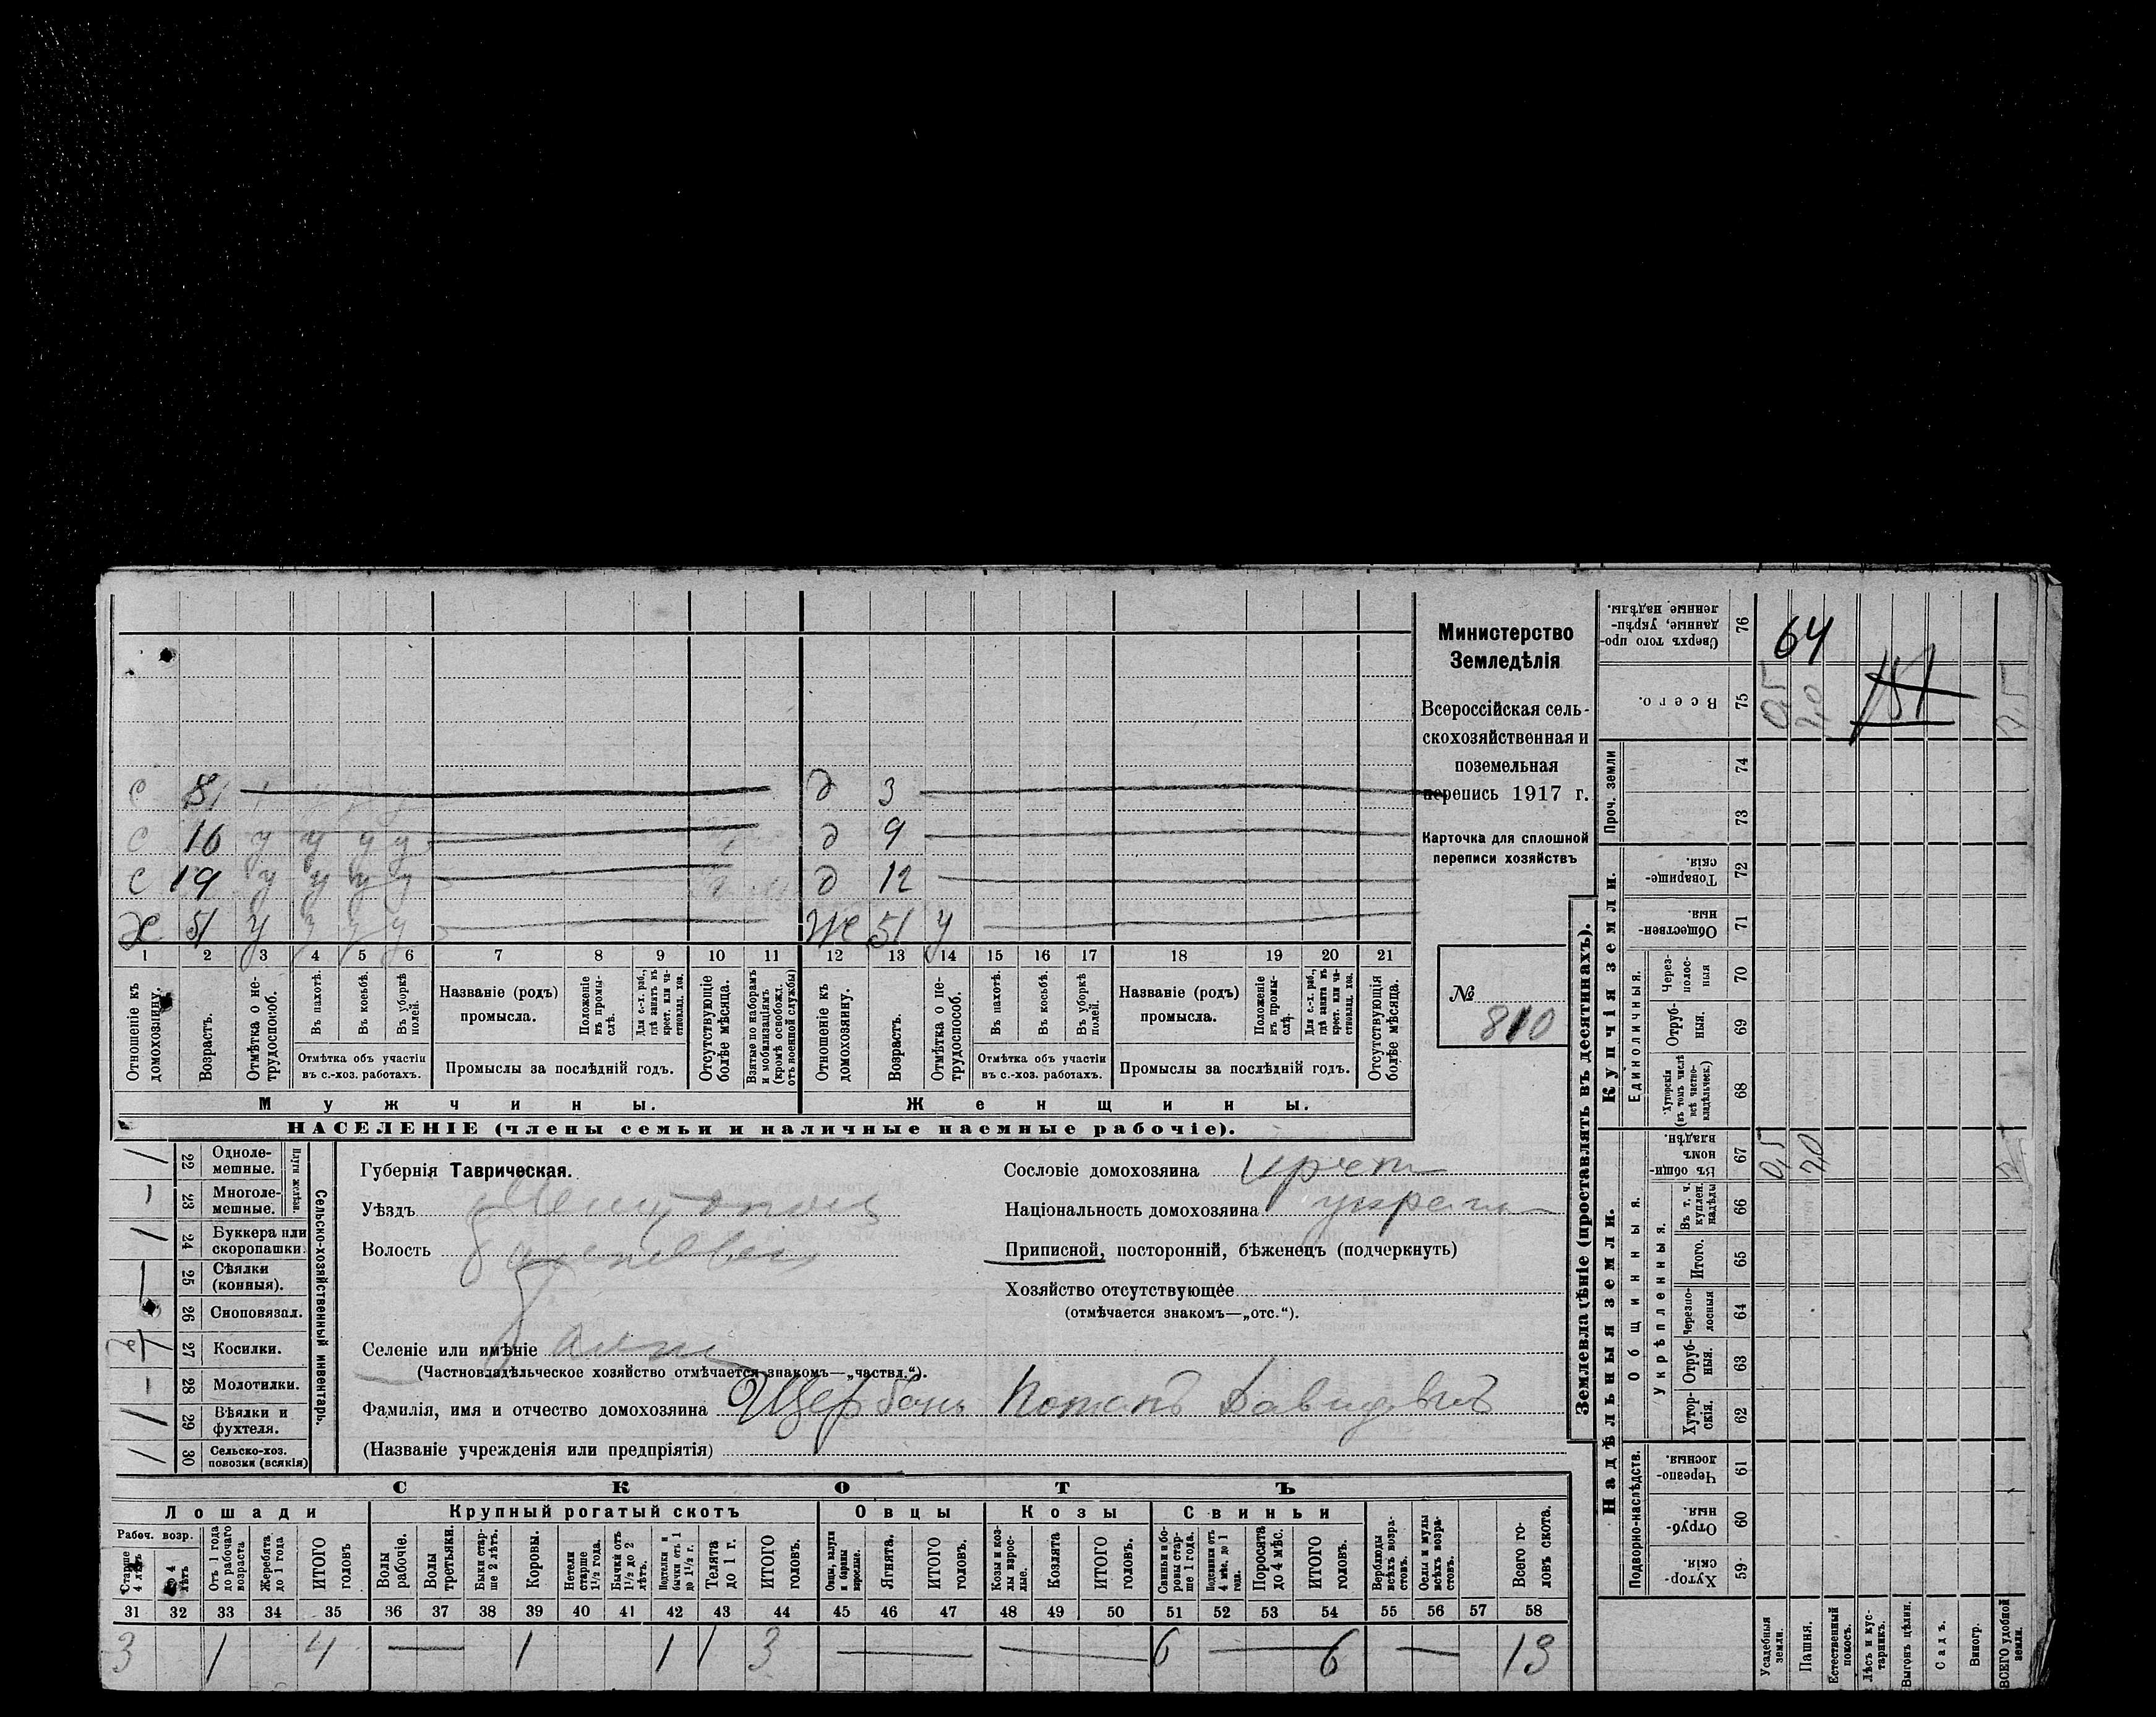 Министерство
Земледѣлія
Всероссійская сель-
скохозяйственная и
поземельная
перепись 1917 г.
Карточка для сплошной
переписи хозяйствъ
№
810
с 8
с 16 у у у у
с 19 у у у у
х 51 у у у у
д 3
д 9
д 12
Же 51 у
1 2 3 4 5 6 7 8 9 10 11 12 13 14 15 16 17 18 19 20 21
Отношеніе къ домохозяину.
Возрастъ.
Отмѣтка о не-трудоспособ.
Въ пахотѣ.
Въ косьбѣ.
Въ уборкѣ полей.
Отмѣтка объ участіи
въ с.-хоз. работахъ.
Названіе (родъ)
промысла.
Положеніе въ промы-слѣ.
Для с.-х. раб., гдѣ занятъ въ крест. или ча-стновлад. хоз.
Промыслы за послѣдній годъ.
Отсутствующіе болѣе мѣсяца.
Взятые по наборамъ и мобилизаціямъ (кромѣ освобожд. отъ военной службы)
Отношеніе къ домохозяину.
Возрастъ.
Отмѣтка о не-трудоспособ.
Въ пахотѣ.
Въ косьбѣ.
Въ уборкѣ полей.
Отмѣтка объ участіи
въ с.-хоз. работахъ.
Названіе (родъ)
промысла.
Положеніе въ промы-слѣ.
Для с.-х. раб., гдѣ занята въ крест. или ча-стновлад. хоз.
Промыслы за послѣдній годъ.
Отсутствующія болѣе мѣсяца.
Мужчины.
Женщины.
НАСЕЛЕНІЕ (члены семьи и наличные наемные рабочіе).
Сельско-хозяйственный инвентарь.
Плуги желѣз.
/ 22 Одноле-мешные.
- 23 Многоле-мешные.
/ 24 Буккера или скоропашки.
25 Сѣялки (конныя).
26 Сноповязал.
27 Косилки.
- 28 Молотилки.
/ 29 Вѣялки и фухтеля.
30 Сельско-хоз. повозки (всякія)
Губернія Таврическая.
Уѣздъ
Волость
Селеніе или имѣніе
(Частновладѣльческое хозяйство отмѣчается знакомъ—„частвл.“).
Фамилія, имя и отчество домохозяина Щербань Потапъ Давидовичъ
(Названіе учрежденія или предпріятія)
Сословіе домохозяина крест
Національность домохозяина украин
Приписной, посторонній, бѣженецъ (подчеркнуть)
Хозяйство отсутствующее
(отмѣчается знакомъ—„отс.“).
СКОТЪ
Лошади
Крупный рогатый скотъ
Овцы
Козы
Свиньи
Рабоч. возр.
Старше 4 лѣтъ
До 4 лѣтъ
Отъ 1 года до рабочаго возраста
Жеребята до 1 года
ИТОГО головъ
Волы рабочіе.
Волы третьяки.
Быки стар-ше 2 лѣтъ.
Коровы.
Нетели старше 1½ года.
Бычки отъ 1½ до 2 лѣтъ.
Подтелки и бычки отъ 1 до 1½ г.
Телята до 1 г.
ИТОГО головъ.
Овцы, валухи и бараны взрослые.
Ягнята.
ИТОГО головъ.
Козы и коз-лы взрос-лые.
Козлята
ИТОГО головъ.
Свиньи и бо-ровы стар-ше 1 года.
Подсвинки отъ 4 мѣс. до 1 года.
Поросята до 4 мѣс.
ИТОГО головъ.
Верблюды всѣхъ возра-стовъ.
Ослы и мулы всѣхъ возра-стовъ.
Всего го-ловъ скота.
31 32 33 34 35 36 37 38 39 40 41 42 43 44 45 46 47 48 49 50 51 52 53 54 55 56 57 58
3 1 4 — 1 1 1 3 — — 6 — 6 — 13
Землевладѣніе (проставлять въ десятинахъ).
Надѣльныя земли.
Купчія земли.
Проч. земли
Подворно-наслѣдств.
Общинныя.
Укрѣпленныя.
Единоличныя.
Сверхъ того про-данные, укрѣп-ленные надѣлы. 76
Всего. 75
74
73
Товарище-скія. 72
Обществен-ныя. 71
Через-полос-ныя 70
Отруб-ныя. 69
Хуторскія (въ томъ числѣ всѣ частно-владѣльческ.) 68
Въ общи-номъ владѣн. 67
Въ т. ч. куплен. надѣлы 66
Итого. 65
Черезпо-лосныя 64
Отруб-ныя. 63
Хутор-скія. 62
Черезпо-лосныя. 61
Отруб-ныя. 60
Хутор-скія. 59
64
151
0,5 7,0
0,5 7,0
Усадебныя земли.
Пашня.
Естественный покосъ.
Лѣсъ и кус-тарникъ.
Выгонъ цѣлин.
Садъ.
Виногр.
ВСЕГО удобной земли.